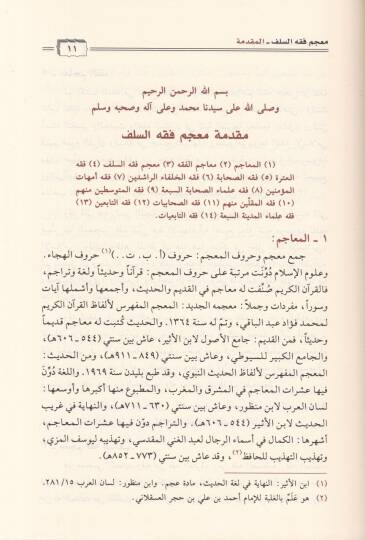 معجم فقه السلف ـ المقدمة
١١
بسم الله الرحمن الرحيم
وصلى الله على سيدنا محمد وعلى آله وصحبه وسلم
مقدمة معجم فقه السلف
(١) المعاجم (٢) معاجم الفقه (٣) معجم فقه السلف (٤) فقه
العترة (٥) فقه الصحابة (٦) فقه الخلفاء الراشدين (٧) فقه أمهات
المؤمنين (٨) فقه علماء الصحابة السبعة (٩) فقه المتوسطين منهم
(١٠) فقه المقلّين منهم (١١) فقه الصحابيات (١٢) فقه التابعين (١٣)
فقه علماء المدينة السبعة (١٤) فقه التابعيات.
١ ـ المعاجم:
جمع معجم وحروف المعجم: حروف (أ. ب. ت..)(١) حروف الهجاء.
وعلوم الإسلام دُوِّنت مرتبة على حروف المعجم: قرآناً وحديثاً ولغة وتراجم،
فالقرآن الكريم صُنِّفت له معاجم في القديم والحديث، وأجمعها وأشملها آيات
وسوراً، مفردات وجملاً: معجمه الجديد: المعجم المفهرس لألفاظ القرآن الكريم
لمحمد فؤاد عبد الباقي، وتمّ له سنة ١٣٦٤. والحديث كُتبت له معاجم قديماً
وحديثاً، فمن القديم: جامع الأصول لابن الأثير، عاش بين سنتي (٥٤٤ ـ ٦٠٦هـ)،
والجامع الكبير للسيوطي، وعاش بين سنتي (٨٤٩ ـ ٩١١هـ)، ومن الحديث:
المعجم المفهرس لألفاظ الحديث النبوي، وقد طبع بليدن سنة ١٩٦٩. واللغة دوِّن
فيها عشرات المعاجم في المشرق والمغرب، والمطبوع منها أكبرها وأوسعها:
لسان العرب لابن منظور، وعاش بين سنتي (٦٣٠ ـ ٧١١هـ)، والنهاية في غريب
الحديث لابن الأثير (٥٤٤ ـ ٦٠٦هـ). والتراجم دوّن فيها عشرات المعاجم،
أشهرها: الكمال في أسماء الرجال لعبد الغني المقدسي، وتهذيبه ليوسف المزي؛
وتهذيب التهذيب للحافظ(٢)، وقد عاش بين سنتي (٧٧٣ ـ ٨٥٢هـ).
(١) ابن الأثير: النهاية في لغة الحديث، مادة عجم. وابن منظور: لسان العرب ٢٨١/١٥.
(٢) هو عَلَمٌ بالغلبة للإمام أحمد بن علي بن حجر العسقلاني.